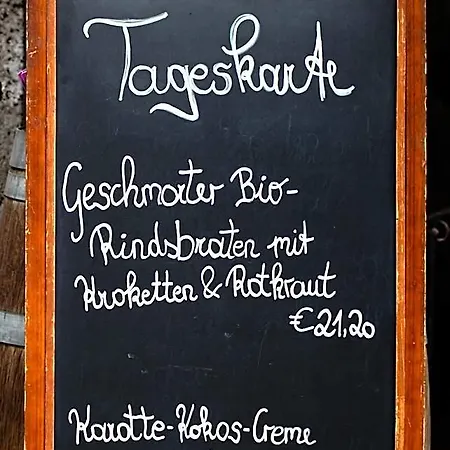 Tageskarte
Geschmorter Bio-
Rindsbraten mit
Kroketten & Rotkraut
€21,20
Karotte-Kokos-Creme